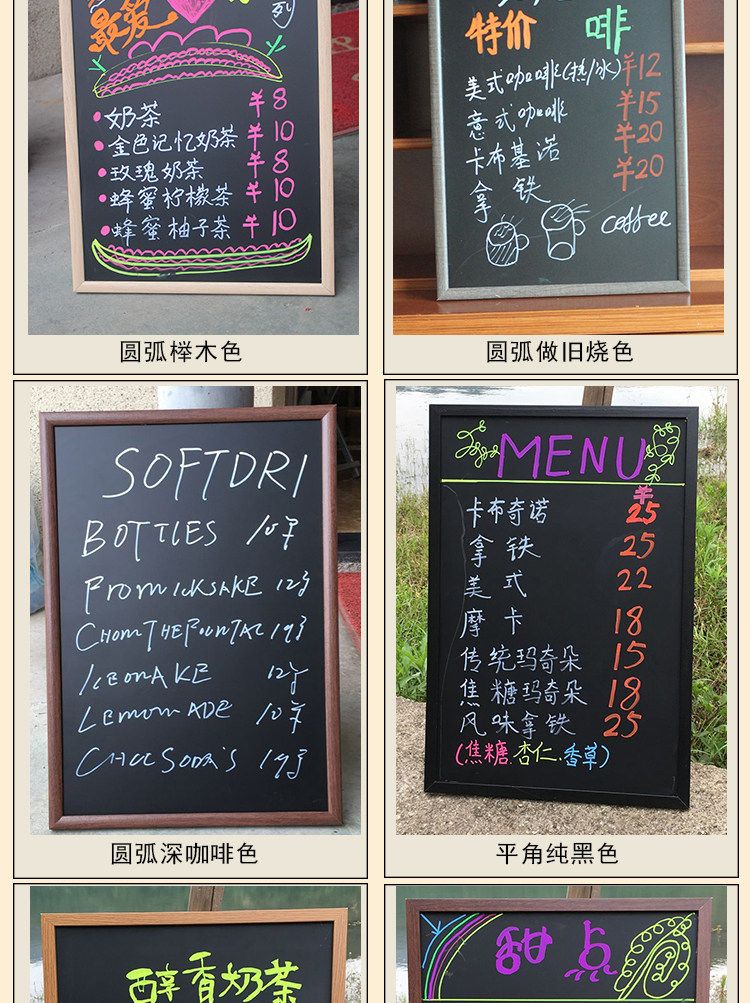 最爱
列
奶茶 ¥8
金色记忆奶茶 ¥10
玫瑰奶茶 ¥8
蜂蜜柠檬茶 ¥10
蜂蜜柚子茶 ¥10
圆弧榉木色
特价 啡
美式咖啡(热/冰) ¥12
意式咖啡 ¥15
卡布基诺 ¥20
拿铁 ¥20
coffee
圆弧做旧烧色
SOFTDRI
BOTTLES 10羊
FROMICKSAKE 12
CHOMTHEFOUNTAL 19
ICEONAKE 12
LEMONADE 10羊
CHOCSODA'S 19
圆弧深咖啡色
MENU
¥
卡布奇诺 25
拿铁 25
美式 22
摩卡 18
传统玛奇朵 15
焦糖玛奇朵 18
风味拿铁 25
(焦糖.杏仁.香草)
平角纯黑色
醇香奶茶
甜点